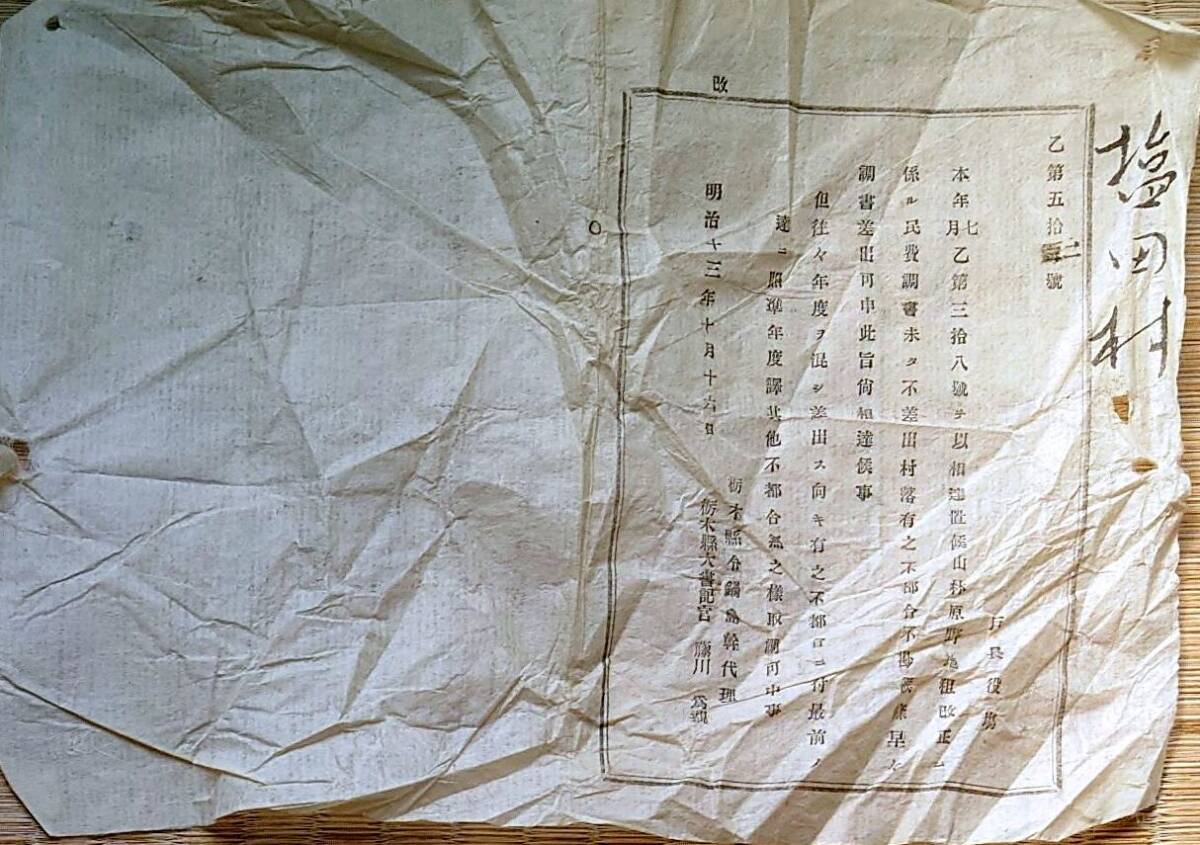 塩田村
乙第五拾二號
戸長役場
本年七月乙第三拾八號ヲ以相達置候山林原野地租改正ニ
係ル民費調書未タ不差出村落有之不都合不尠候條早々
調書差出可申此旨尚相達候事
但往々年度ヲ混シ差出ス向キ有之不都合ニ付最前ノ
達ニ照準年度譯其他不都合無之様取調可申事
明治十三年十月十六日
栃木縣令鍋島幹代理
栃木縣大書記官 藤川爲親
改